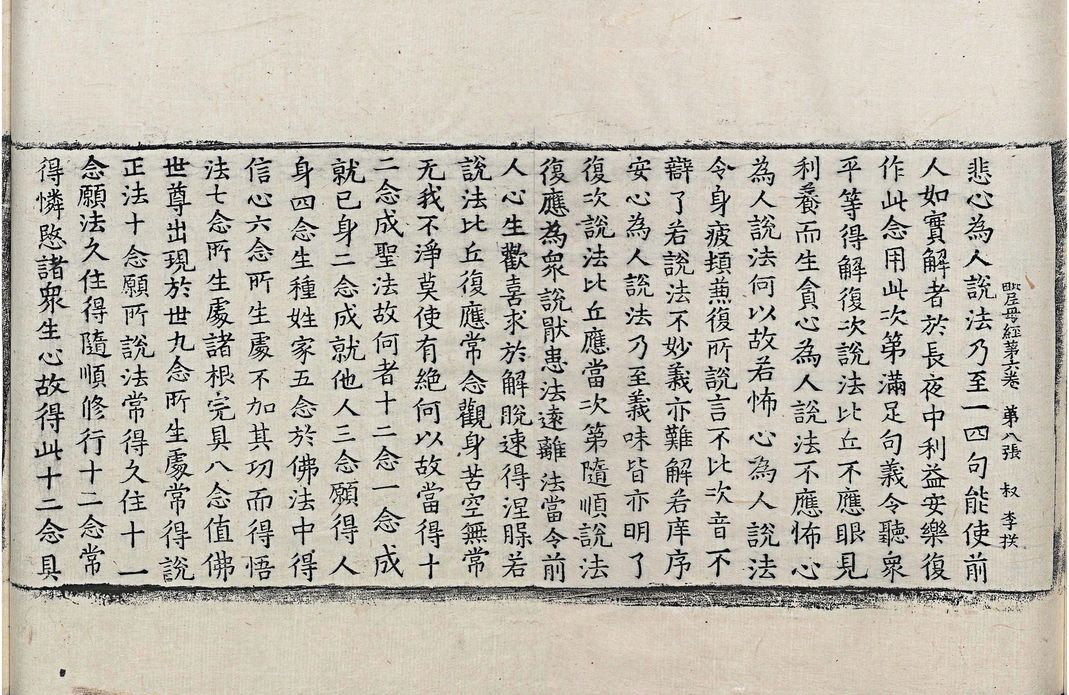 毗尼母經第六卷 第八張 叔 李摸
悲心為人說法乃至一四句能使前
人如實解者於長夜中利益安樂復
作此念用此次第滿足句義令聽衆
平等得解復次說法比丘不應眼見
利養而生貪心為人說法不應怖心
為人說法何以故若怖心為人說法
令身疲煩兼復所說言不比次音不
辯了若說法不妙義亦難解若庠序
安心為人說法乃至義味皆亦明了
復次說法比丘應當次第隨順說法
復應為衆說猒患法遠離法當令前
人心生歡喜求於解脫速得涅槃若
說法比丘復應常念觀身苦空無常
无我不淨莫使有絕何以故當得十
二念成聖法故何者十二念一念成
就已身二念成就他人三念願得人
身四念生種姓家五念於佛法中得
信心六念所生處不加其功而得悟
法七念所生處諸根完具八念值佛
世尊出現於世九念所生處常得說
正法十念願所說法常得久住十一
念願法久住得隨順修行十二念常
得憐愍諸衆生心故得此十二念具